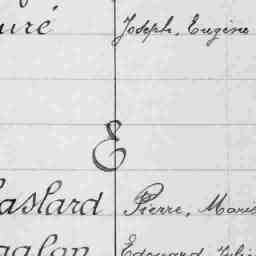 uré Joseph, Eugène
E
aslard Pierre, Marie
galon Edouard, Juli